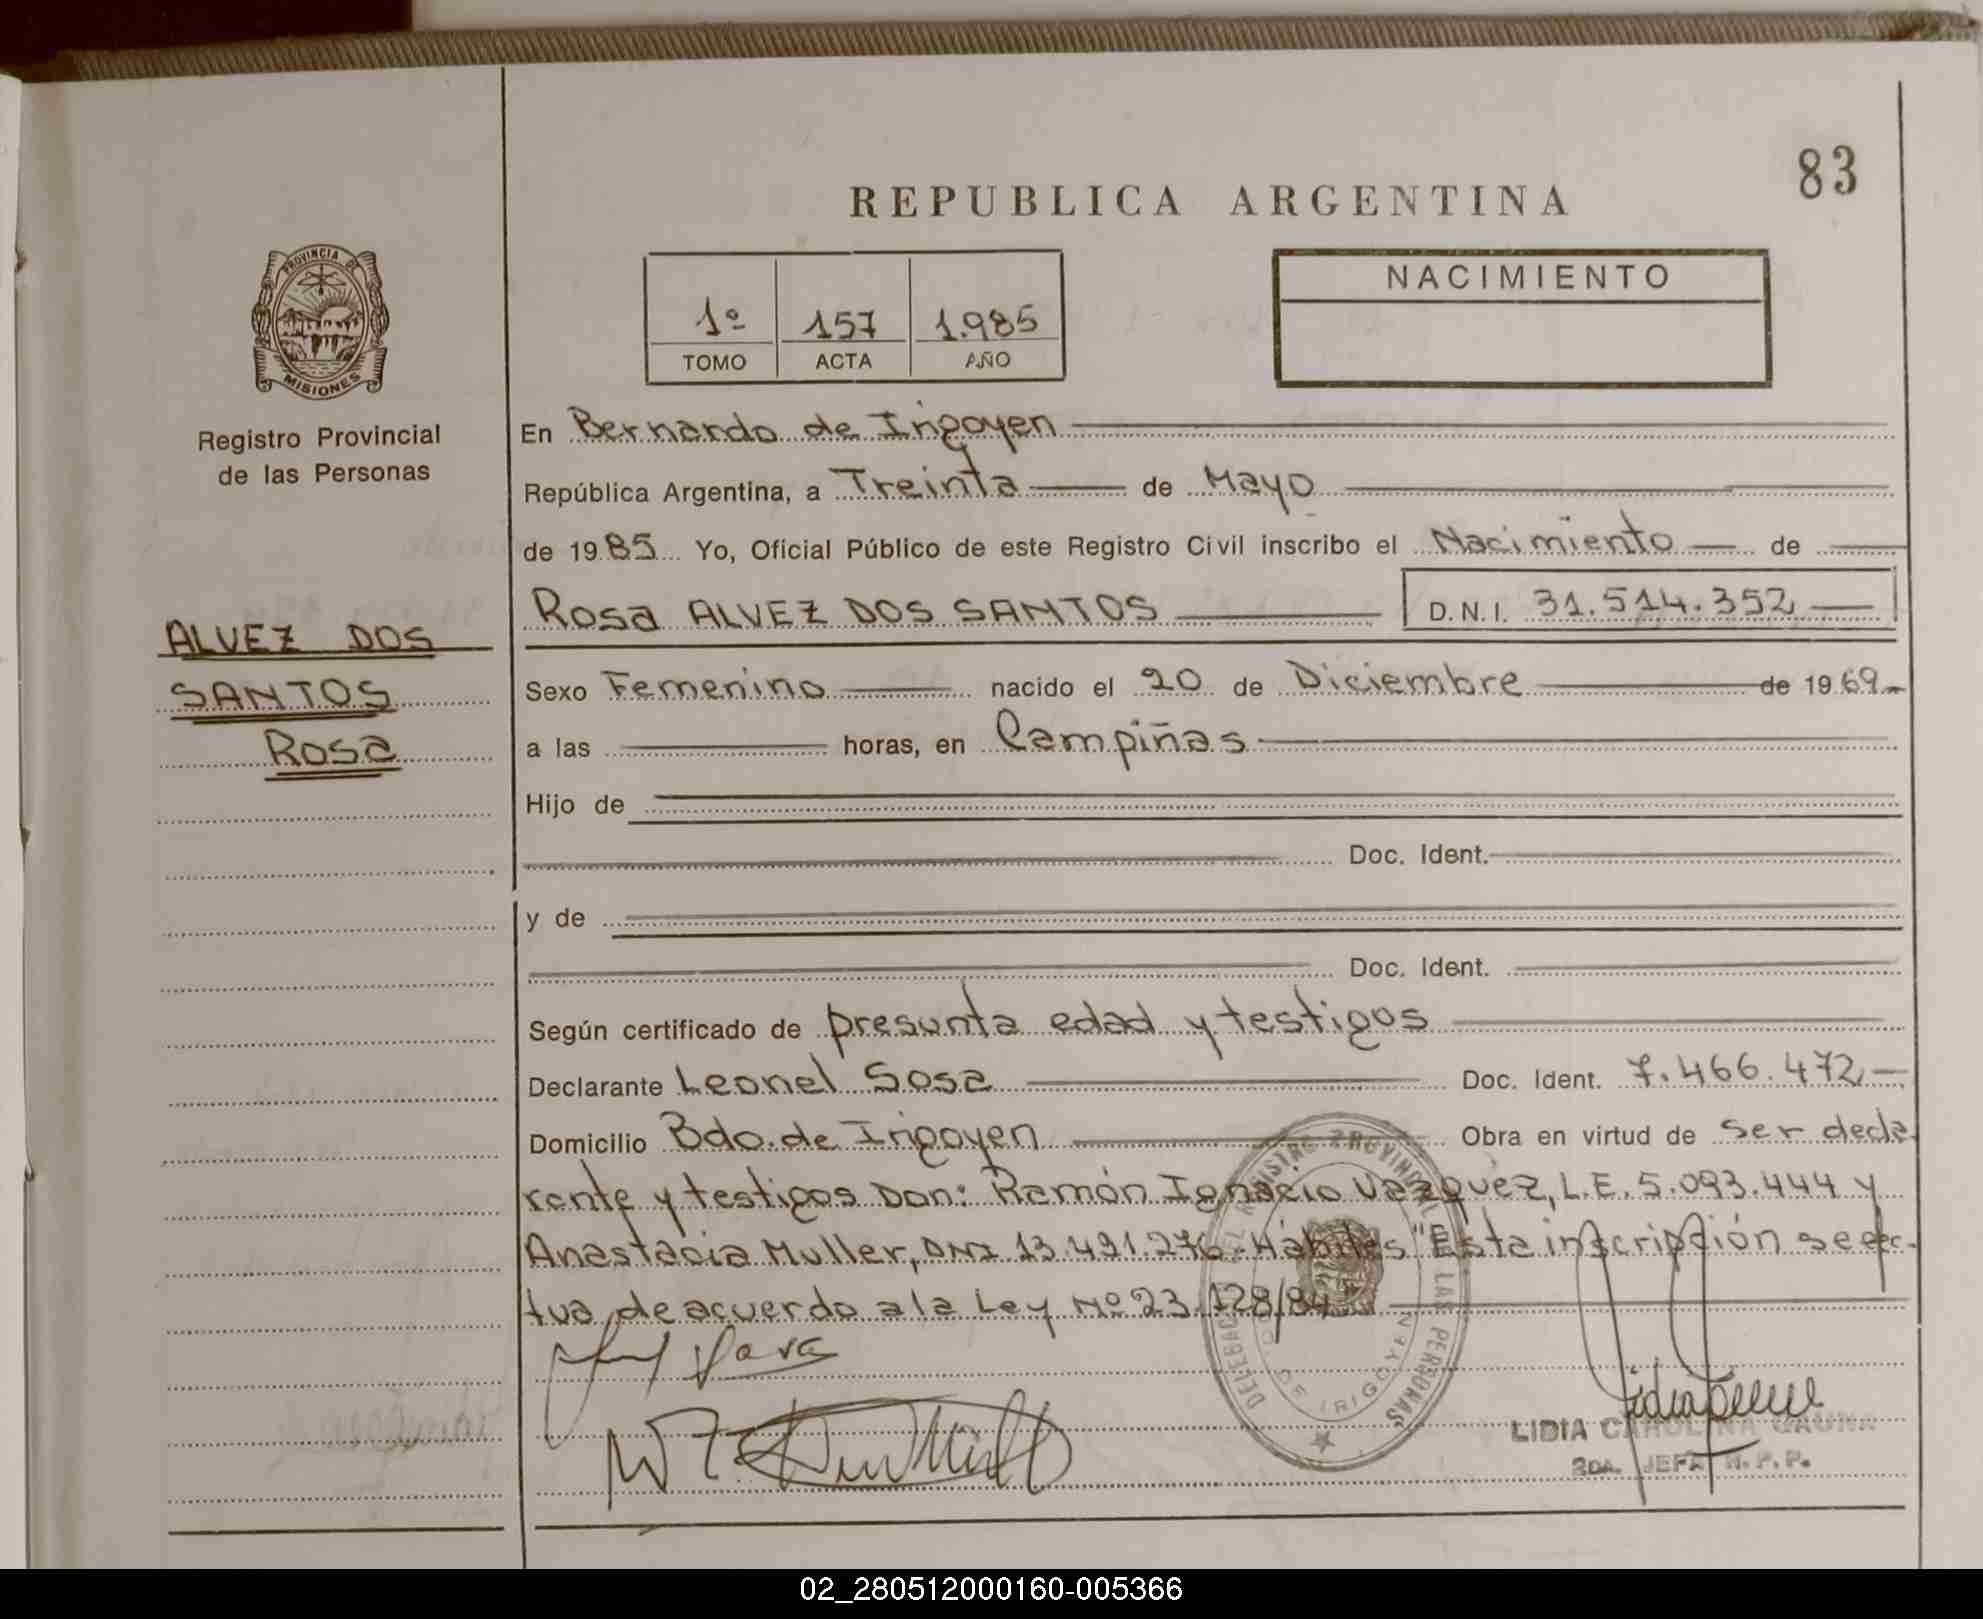 83
REPUBLICA ARGENTINA
PROVINCIA DE
MISIONES
Registro Provincial
de las Personas
1º 157 1.985
TOMO ACTA AÑO
NACIMIENTO
En Bernardo de Irigoyen
República Argentina, a Treinta de Mayo
de 1985 Yo, Oficial Público de este Registro Civil inscribo el Nacimiento de
Rosa ALVEZ DOS SANTOS D.N.I. 31.514.352
ALVEZ DOS
SANTOS
Rosa
Sexo Femenino nacido el 20 de Diciembre de 1969
a las horas, en Campiñas
Hijo de
Doc. Ident.
y de
Doc. Ident.
Según certificado de presunta edad y testigos
Declarante Leonel Sosa Doc. Ident. 7.466.472
Domicilio Bdo. de Irigoyen Obra en virtud de ser decla
rante y testigos Don: Ramón Ignacio Vazquez, L.E. 5.093.444 y
Anastacia Muller, DNI 13.491.276. Hábiles "Esta inscripción se efec-
tua de acuerdo a la Ley Nº 23.128/84"
LIDIA CAROLINA GAUNA
JEFA R.P.P.
02_280512000160-005366